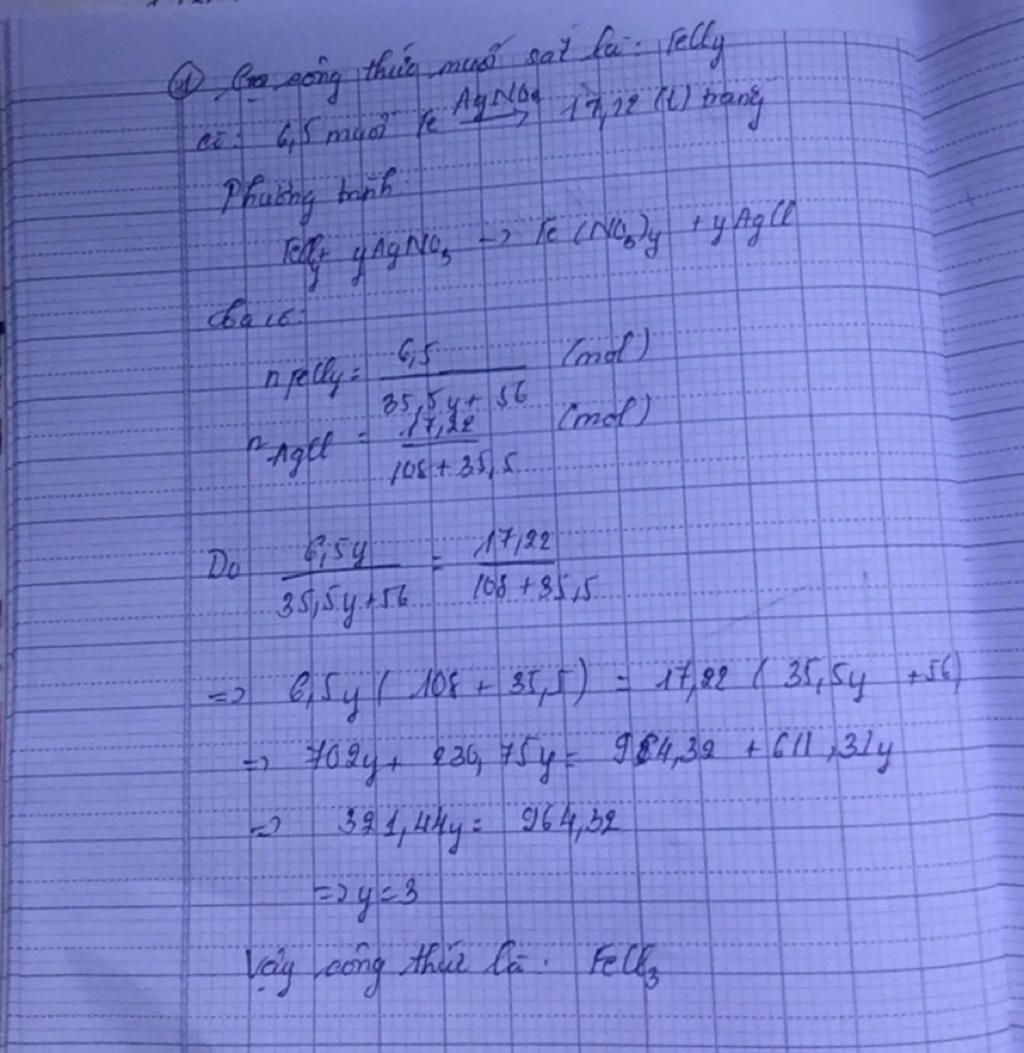 ④ Gọi công thức muối sắt là: FeCly
Có: 6,5 muối Fe AgNO3 → 17,22 (l) trắng
Phương trình:
FeCly + yAgNO3 -> Fe(NO3)y + yAgCl
Ta có:
nFeCly = 6,5 / 35,5y + 56 (mol)
nAgCl = 17,22 / 108 + 35,5 (mol)
Do 6,5y / 35,5y + 56 = 17,22 / 108 + 35,5
=> 6,5y ( 108 + 35,5 ) = 17,22 ( 35,5y + 56)
=> 702y + 230,75y = 964,32 + 611,31y
=> 321,44y = 964,32
=> y = 3
Vậy công thức là: FeCl3